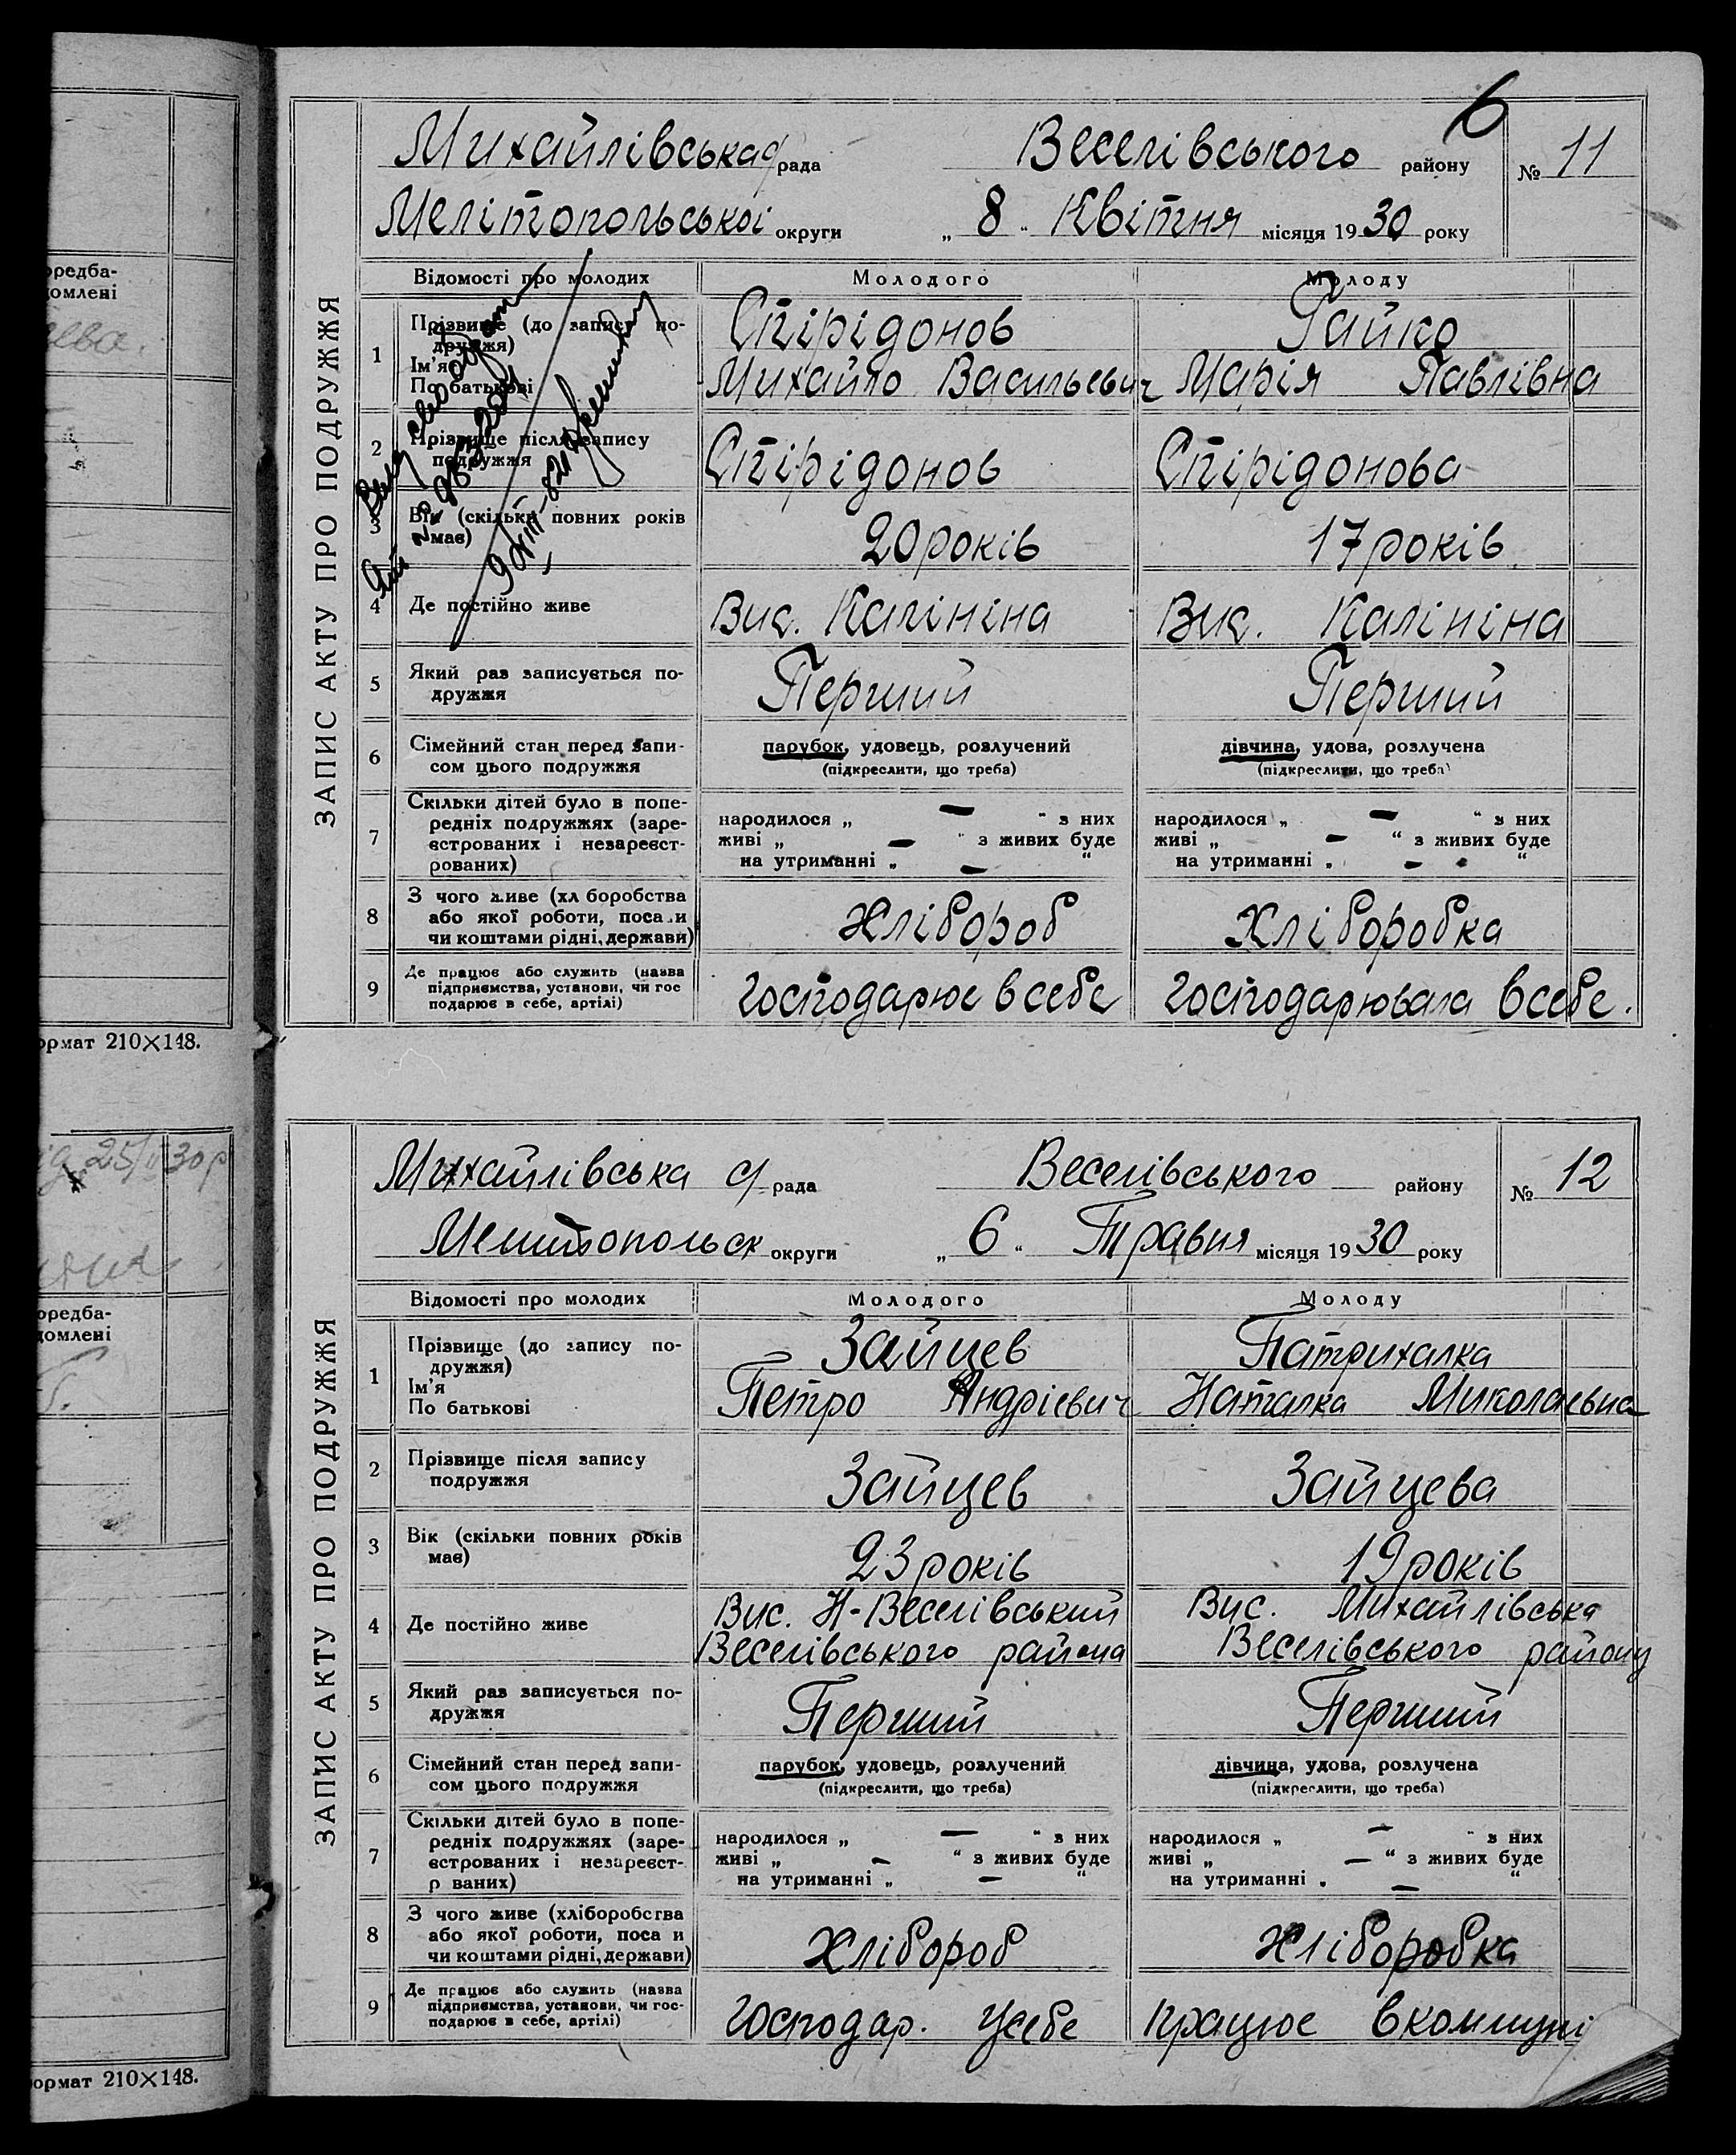 6
Михайлівська с/рада Веселівського району № 11
Мелітопольської округи „ 8 “ Квітня місяця 1930 року
ЗАПИС АКТУ ПРО ПОДРУЖЖЯ
Відомості про молодих Молодого Молоду
1 Прізвище (до запису по-
дружжя)
Ім'я
По батькові
Спірідонов Гайко
Михайло Васильевич Марія Павлівна
2 Прізвище після запису
подружжя
Спірідонов Спірідонова
3 Вік (скільки повних років
має)
20 років 17 років
4 Де постійно живе Вис. Калініна Вис. Калініна
5 Який раз записується по-
дружжя
Перший Перший
6 Сімейний стан перед запи-
сом цього подружжя
парубок, удовець, розлучений дівчина, удова, розлучена
(підкреслити, що треба) (підкреслити, що треба)
7 Скільки дітей було в попе-
редніх подружжях (заре-
єстрованих і незареєст-
рованих)
народилося „ — “ з них народилося „ — “ з них
живі „ — “ з живих буде живі „ — “ з живих буде
на утриманні „ — “ на утриманні „ — “
8 З чого живе (хл боробства
або якої роботи, поса и
чи коштами рідні, держави)
Хлібороб Хліборобка
9 Де працює або служить (назва
підприємства, установи, чи гос
подарює в себе, артілі)
Господарює в себе Господарювала в себе.
Михайлівська с/рада Веселівського району № 12
округи „ 6 “ Травня місяця 1930 року
ЗАПИС АКТУ ПРО ПОДРУЖЖЯ
Відомості про молодих Молодого Молоду
1 Прізвище (до запису по-
дружжя)
Ім'я
По батькові
Зайцев Патрихалка
Петро Андрієвич Наталка Миколаевна
2 Прізвище після запису
подружжя
Зайцев Зайцева
3 Вік (скільки повних років
має)
23 років 19 років
4 Де постійно живе
Вис. Н-Веселівський Вис. Михайлівська
Веселівського района Веселівського району
5 Який раз записується по-
дружжя
Перший Перший
6 Сімейний стан перед запи-
сом цього подружжя
парубок, удовець, розлучений дівчина, удова, розлучена
(підкреслити, що треба) (підкреслити, що треба)
7 Скільки дітей було в попе-
редніх подружжях (заре-
єстрованих і незареєст-
р ваних)
народилося „ — “ з них народилося „ — “ з них
живі „ — “ з живих буде живі „ — “ з живих буде
на утриманні „ — “ на утриманні „ — “
8 З чого живе (хліборобства
або якої роботи, поса и
чи коштами рідні, держави)
Хлібороб Хліборобка
9 Де працює або служить (назва
підприємства, установи, чи гос-
подарює в себе, артілі)
Господар. усебе Працює в коммуні
оредба-
домлені
ормат 210×148.
25/II 30 р
оредба-
домлені
ормат 210×148.